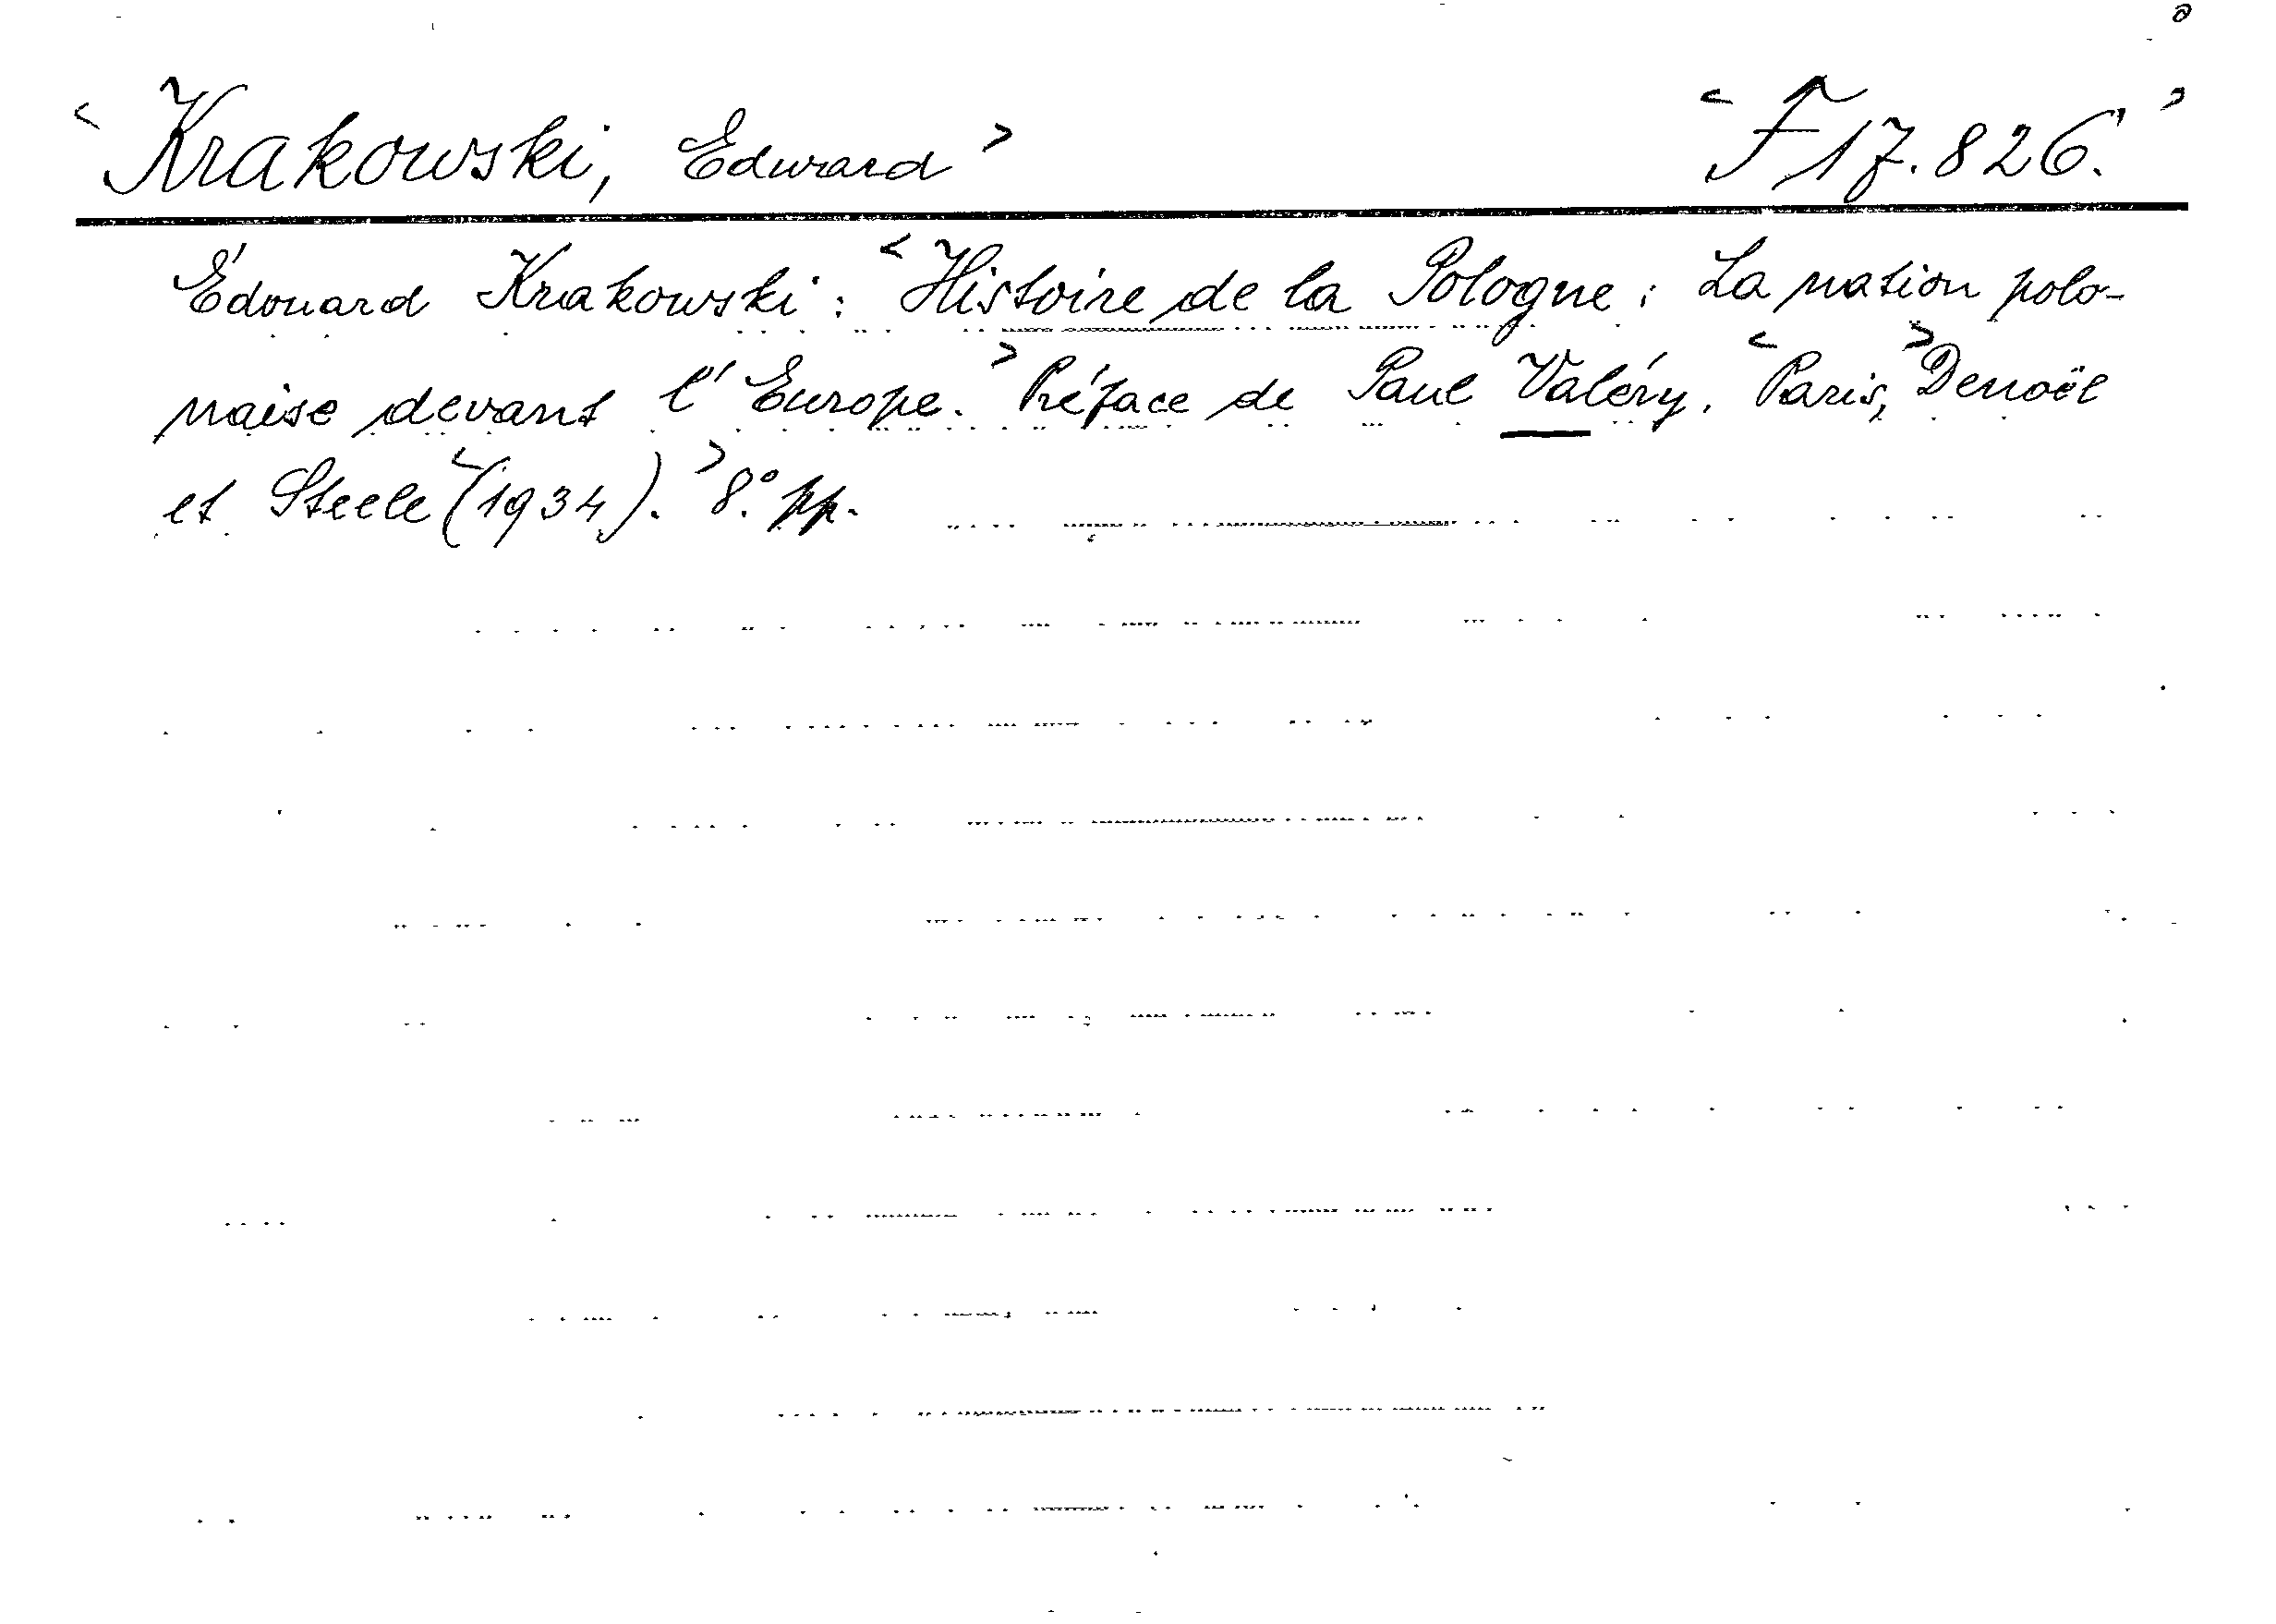 <Krakowski, Edward> <F 17.826.>
Édouard Krakowski: <Histoire de la Pologne: La nation polo-
naise devant l'Europe.> Préface de Paul Valéry. <Paris,> Denoël
et Steele <(1934).> 8° pp.